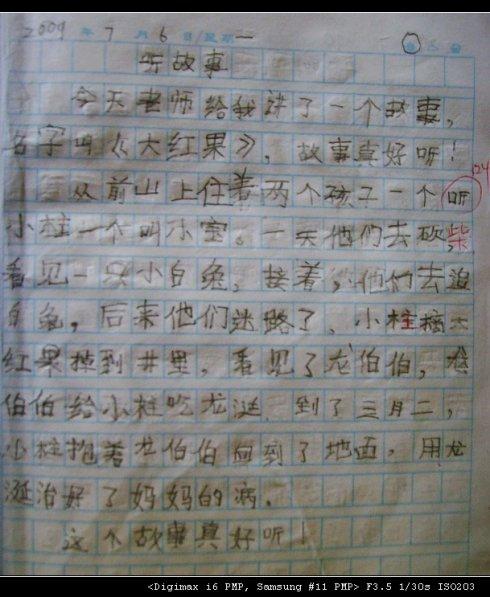 2009年7月6日/星期一
听故事
今天老师给我讲了一个故事，
名字叫《大红果》，故事真好听！
从前山上住着两个孩子一个听
小柱一个叫小宝。一天他们去砍柴
看见一只小白兔，接着，他们去追
白兔，后来他们迷路了、小柱摘大
红果掉到井里，看见了龙伯伯，龙
伯伯给小柱吃龙涎.到了三月二，
小柱抱着龙伯伯回到了地面，用龙
涎治好了妈妈的病.
这个故事真好听！
<Digimax i6 PMP, Samsung #11 PMP> F3.5 1/30s ISO203